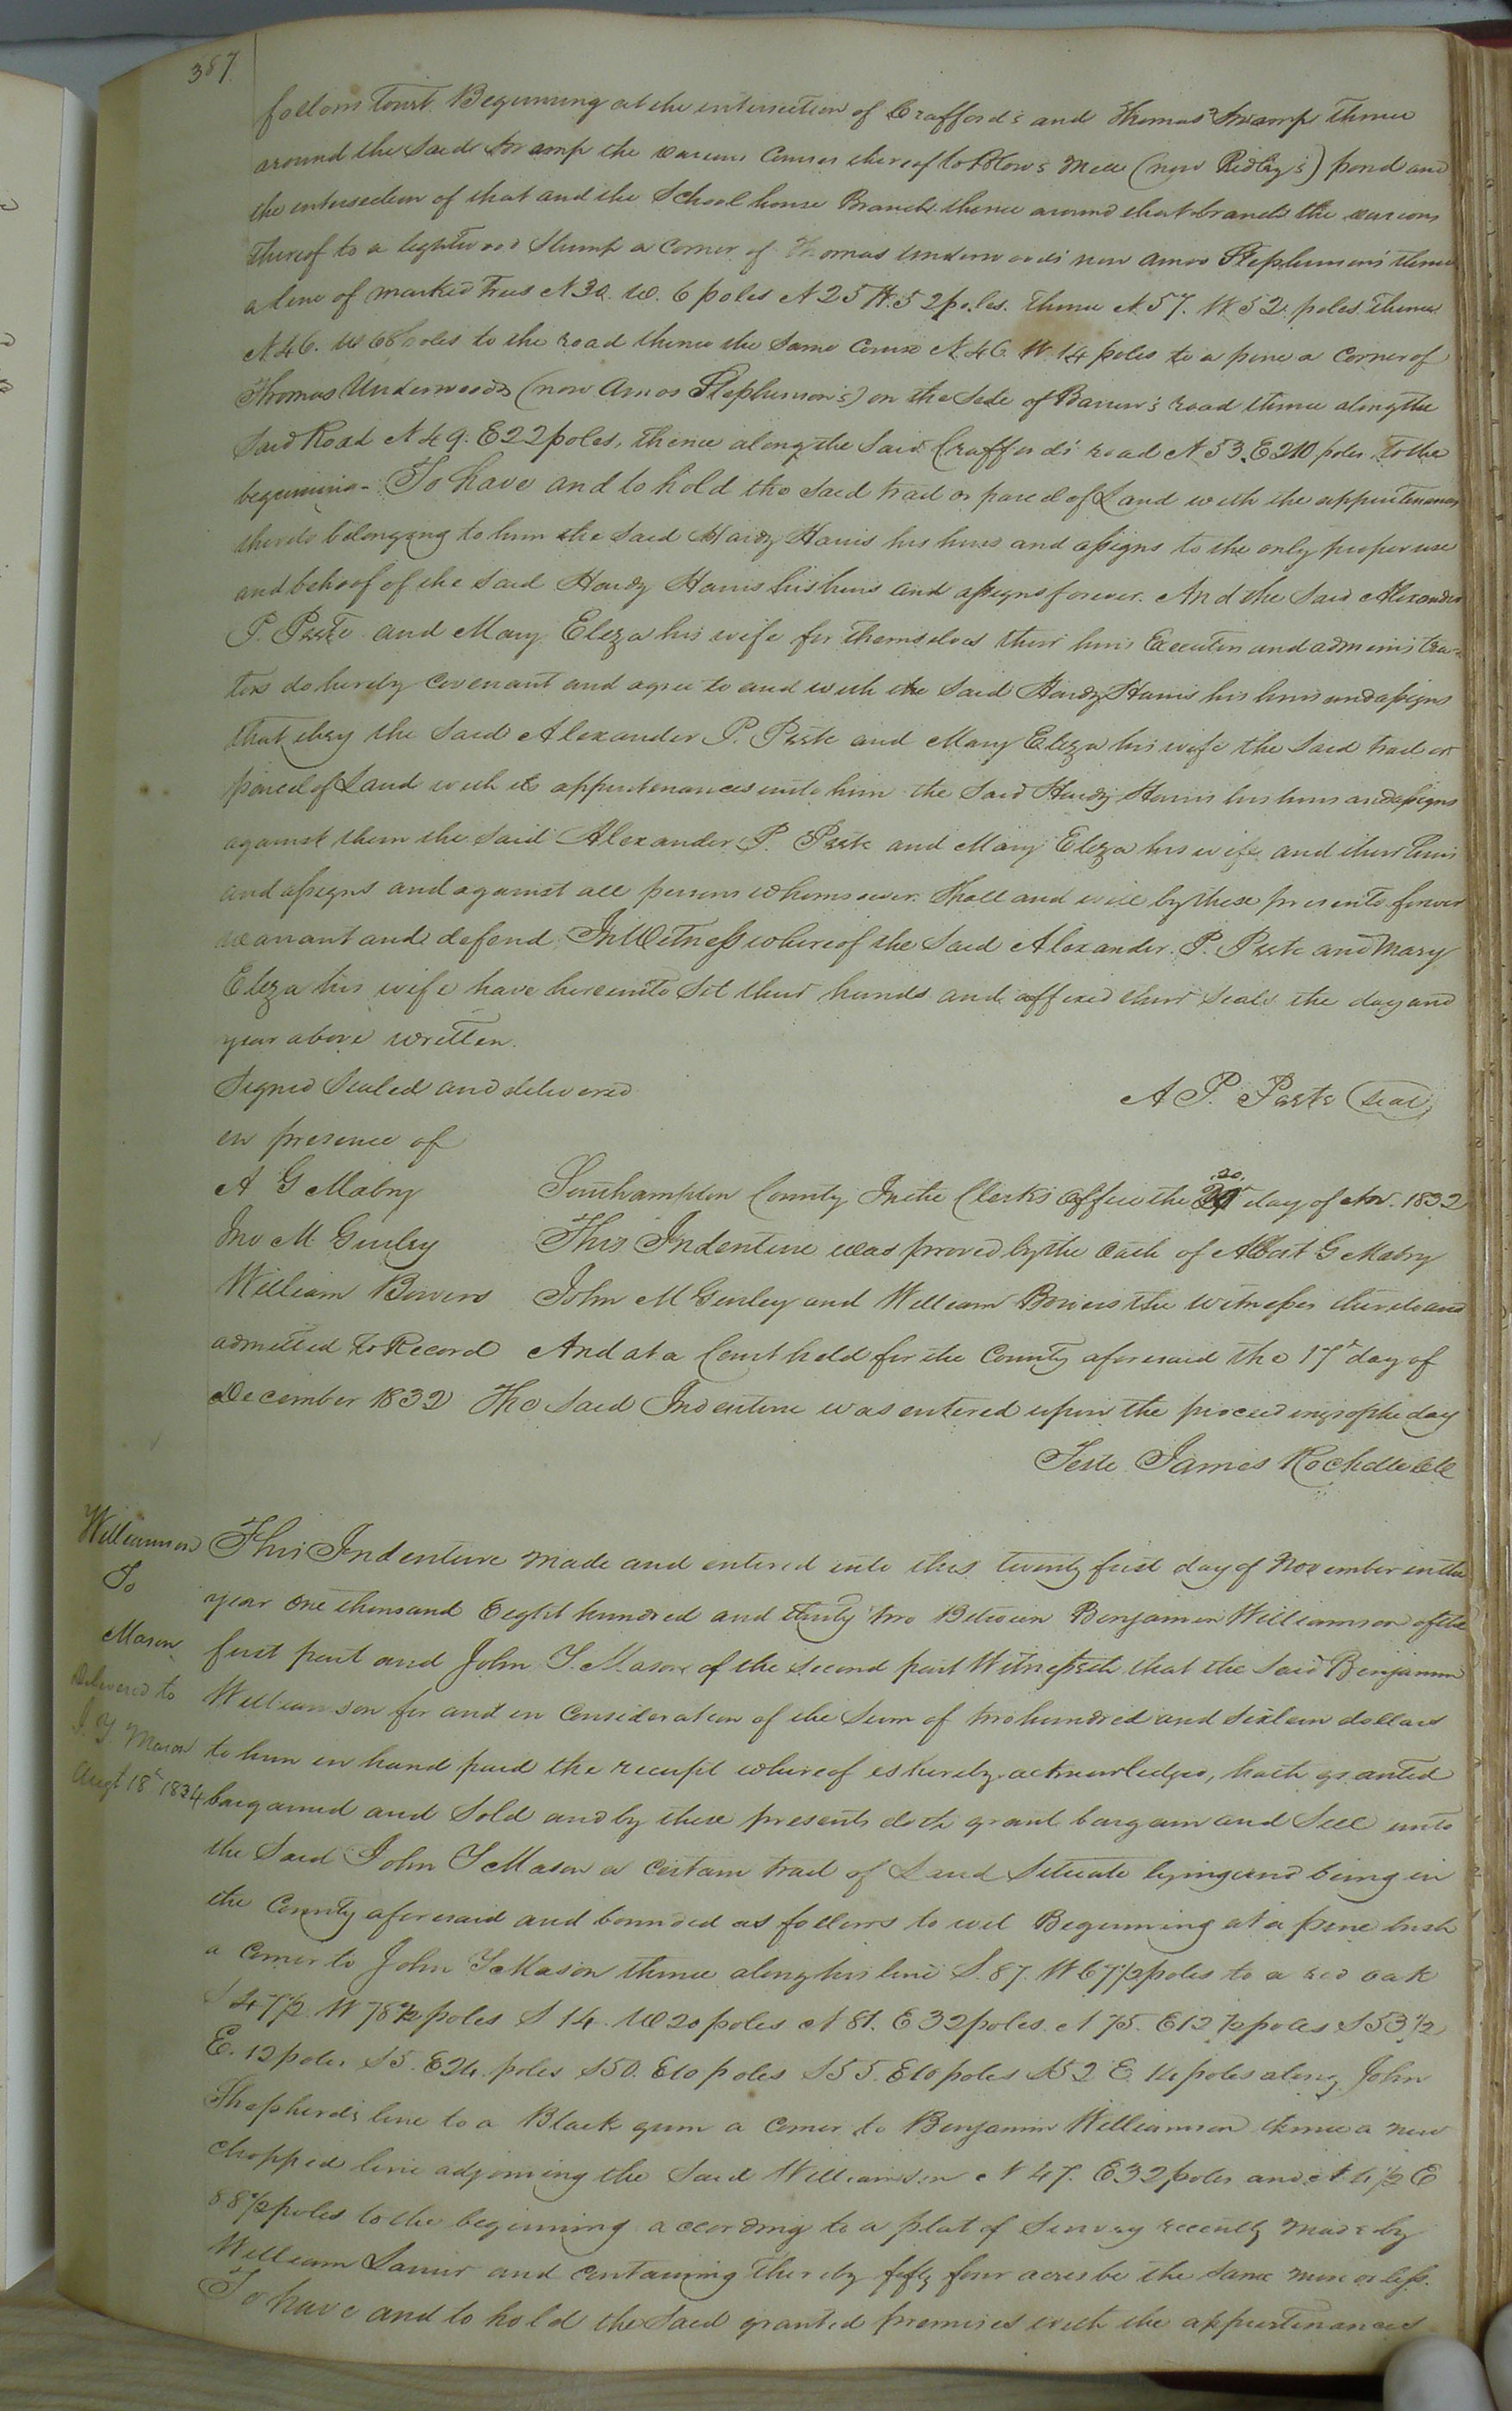 387
follows towit. Beginning at the intersection of Crafford's and Thomas' Swamp thence
around the said Swamp the various courses thereof to Blow's Mill (now Ridley's) pond and
the intersection of that and the School house Branch. thence around that branch the various
thereof to a lightwood Stump a corner of Thomas Underwoods now Amos Stephenson's thence
a line of marked trees N 30. W. 6 poles N 25 W. 52 poles. Thence N. 57. W 52 poles. thence
N. 46. W 68 poles to the road thence the same course N. 46 W. 14 poles to a pine a corner of
Thomas Underwoods (now Amos Stephenson's) on the side of Barrow's road thence along the
said Road N 49. E 22 poles, thence along the said Crafford's road N 53. E 210 poles to the
beginning - To have and to hold the said tract or parcel of Land with the appurtenances
thereto belonging to him the said Hardy Harris his heirs and assigns to the only proper use
and behoof of the said Hardy Harris his heirs and assigns forever. And the said Alexander
P. Peete and Mary Eliza his wife for themselves their heirs Executors and administra-
tors do hereby covenant and agree to and with the said Hardy Harris his heirs and assigns
that they the said Alexander P. Peete and Mary Eliza his wife the said tract or
parcel of Land with its appurtenances unto him the said Hardy Harris his heirs and assigns
against them the said Alexander P. Peete and Mary Eliza his wife and their heirs
and assigns and against all persons whomsoever. Shall and will by these presents forever
warrant and defend. In Witness whereof the said Alexander. P. Peete and Mary
Eliza his wife have hereunto set their hands and affixed their seals the day and
year above written.
Signed Sealed and delivered A P. Peete (Seal)
in presence of
A G Mabry Southampton County In the Clerks office the day of Nov. 1832
Jno M Gurley This Indenture was proved by the oath of Albert G Mabry
William Bowers John M Gurley and William Bowers the witnesses thereto and
admitted to Record And at a Court held for the County aforesaid the 17th day of
December 1832 The said Indenture was entered upon the proceedings of the day
Teste James Rochelle Clk
Williamson
To
Mason
Delivered to
J. Y. Mason
Augt 18th 1834
This Indenture made and entered into this twenty first day of November in the
year one thousand Eight hundred and thirty two Between Benjamin Williamson of the
first part and John Y. Mason of the second part Witnesseth that the said Benjamin
Williamson for and in consideration of the sum of two hundred and sixteen dollars
to him in hand paid the receipt whereof is hereby acknowledged, hath granted
bargained and sold and by these presents doth grant bargain and sell unto
the said John Y Mason a certain tract of Land Situate lying and being in
the County aforesaid and bounded as follows to wit Beginning at a pine bush
a corner to John Y Mason thence along his line S. 87. W 67 1/2 poles to a red oak
S 47 1/2. W 78 1/2 poles S 14. W 20 poles N 81. E 32 poles. N 75. E 12 1/2 poles S 53 1/2
E. 12 poles S 5. E 24. poles S 50. E 10 poles S 55. E 10 poles S 52 E. 14 poles along John
Shepherd's line to a Black gum a corner to Benjamin Williamson thence a new
chopped line adjoining the said Williamson N 47. E 32 poles and N. 4 1/2 E
88 1/2 poles to the beginning according to a plat of Survey recently made by
William Lanier and containing thereby fifty four acres be the same more or less.
To have and to hold the said granted premises with the appurtenances